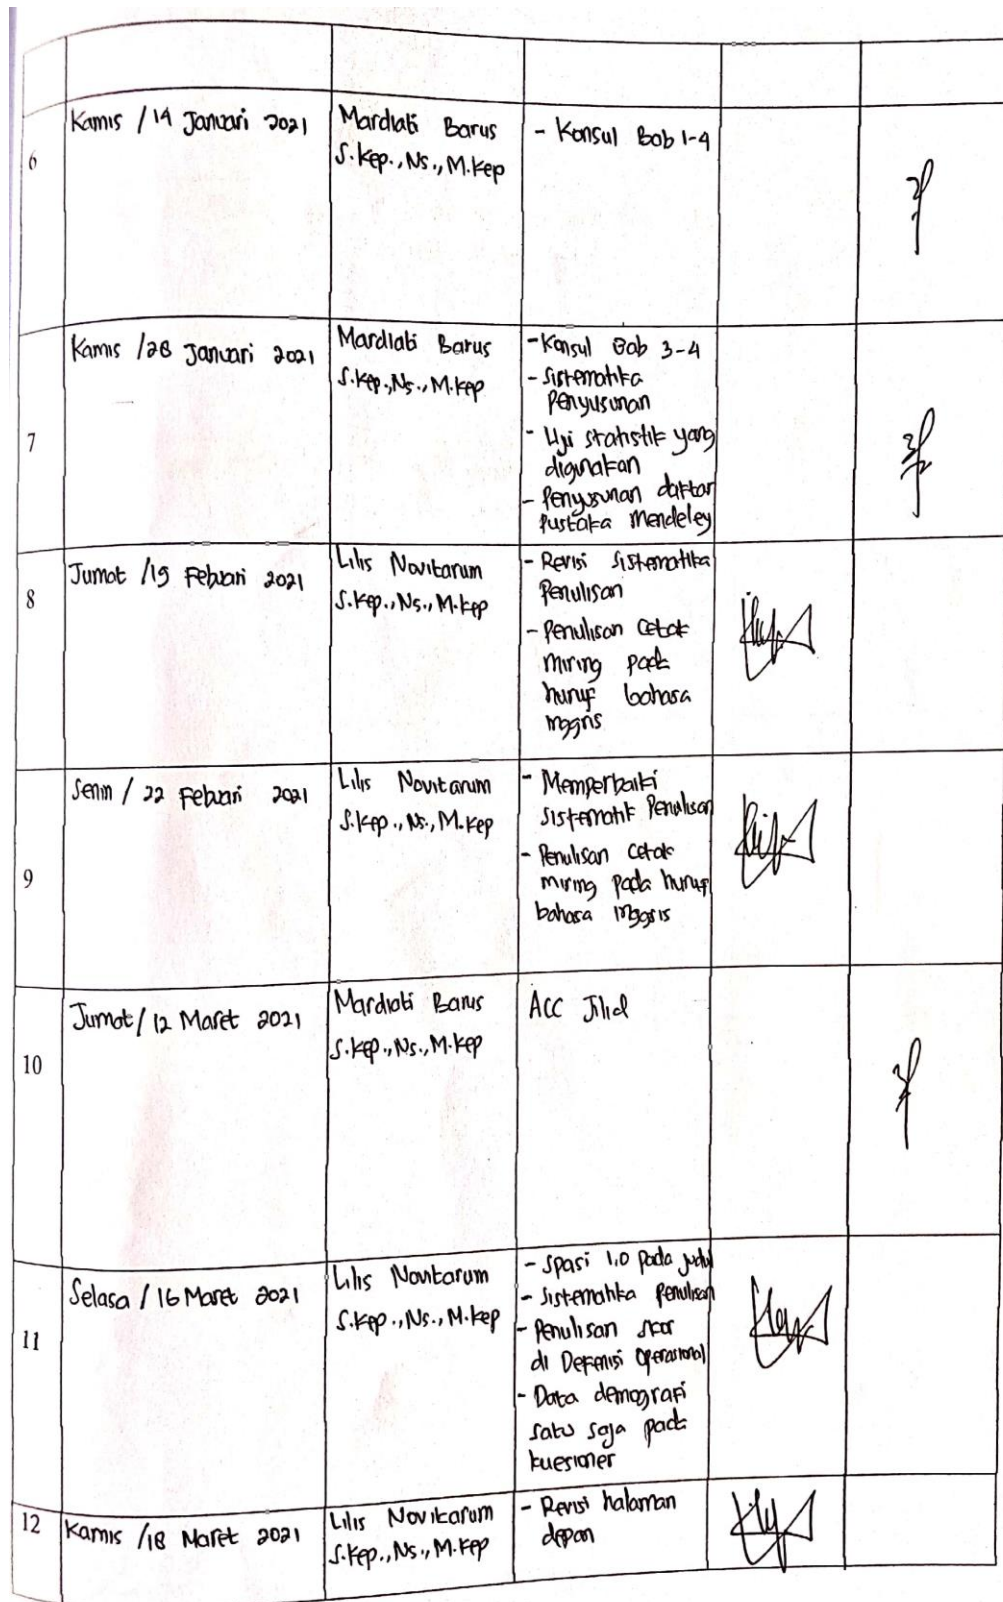 6
Kamis / 14 Januari 2021
Mardiati Barus
S.Kep., Ns., M.Kep
- Konsul Bab 1-4
7
Kamis / 28 Januari 2021
Mardiati Barus
S.Kep., Ns., M.Kep
- Konsul Bab 3-4
- Sistematika
Penyusunan
- Uji statistik yang
digunakan
- Penyusunan daftar
Pustaka Mendeley
8
Jumat / 19 Febuari 2021
Lilis Novitarum
S.Kep., Ns., M.Kep
- Revisi Sistematika
Penulisan
- Penulisan Cetak
miring pada
huruf bahasa
inggris
9
Senin / 22 Febuari 2021
Lilis Novitarum
S.Kep., Ns., M.Kep
- Memperbaiki
Sistematik Penulisan
- Penulisan cetak
miring pada huruf
bahasa inggris
10
Jumat / 12 Maret 2021
Mardiati Barus
S.Kep., Ns., M.Kep
ACC Jilid
11
Selasa / 16 Maret 2021
Lilis Novitarum
S.Kep., Ns., M.Kep
- Spasi 1,0 pada judul
- Sistematika Penulisan
- Penulisan skor
di Defenisi Operasional
- Data demografi
satu saja pada
kuesioner
12
Kamis / 18 Maret 2021
Lilis Novitarum
S.Kep., Ns., M.Kep
- Revisi halaman
depan